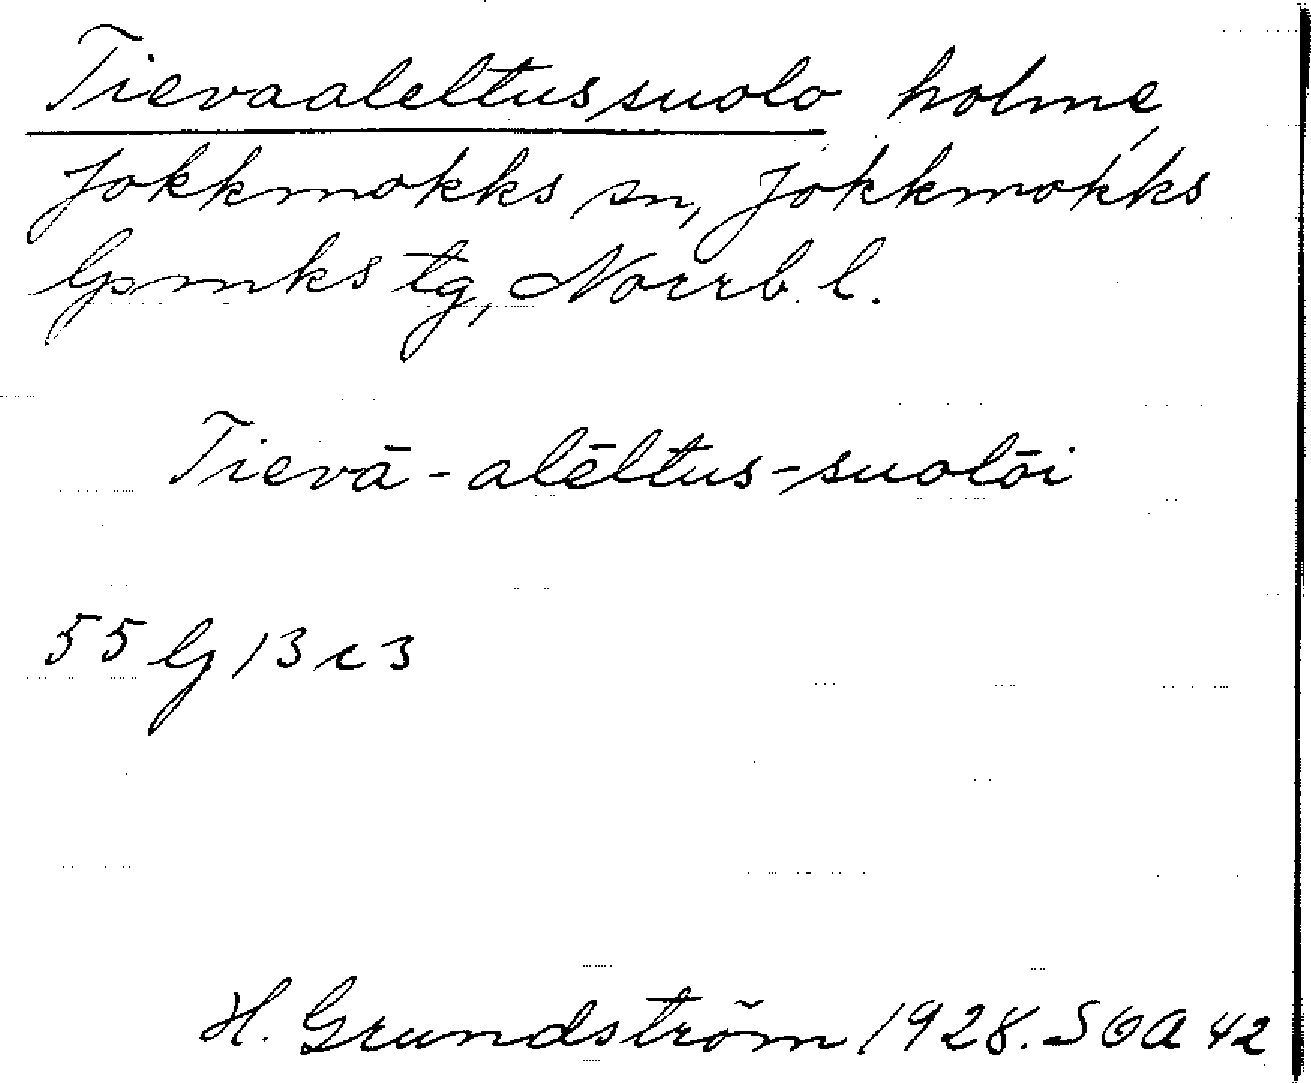 Tievaaleltussuolo holme,
Jokkmokks sn, Jokkmokks
lpmks tg, Norrb. l.
Tievā-alēltus-suolōi
55 G 13 c 3
H. Grundström 1928. SOA 42